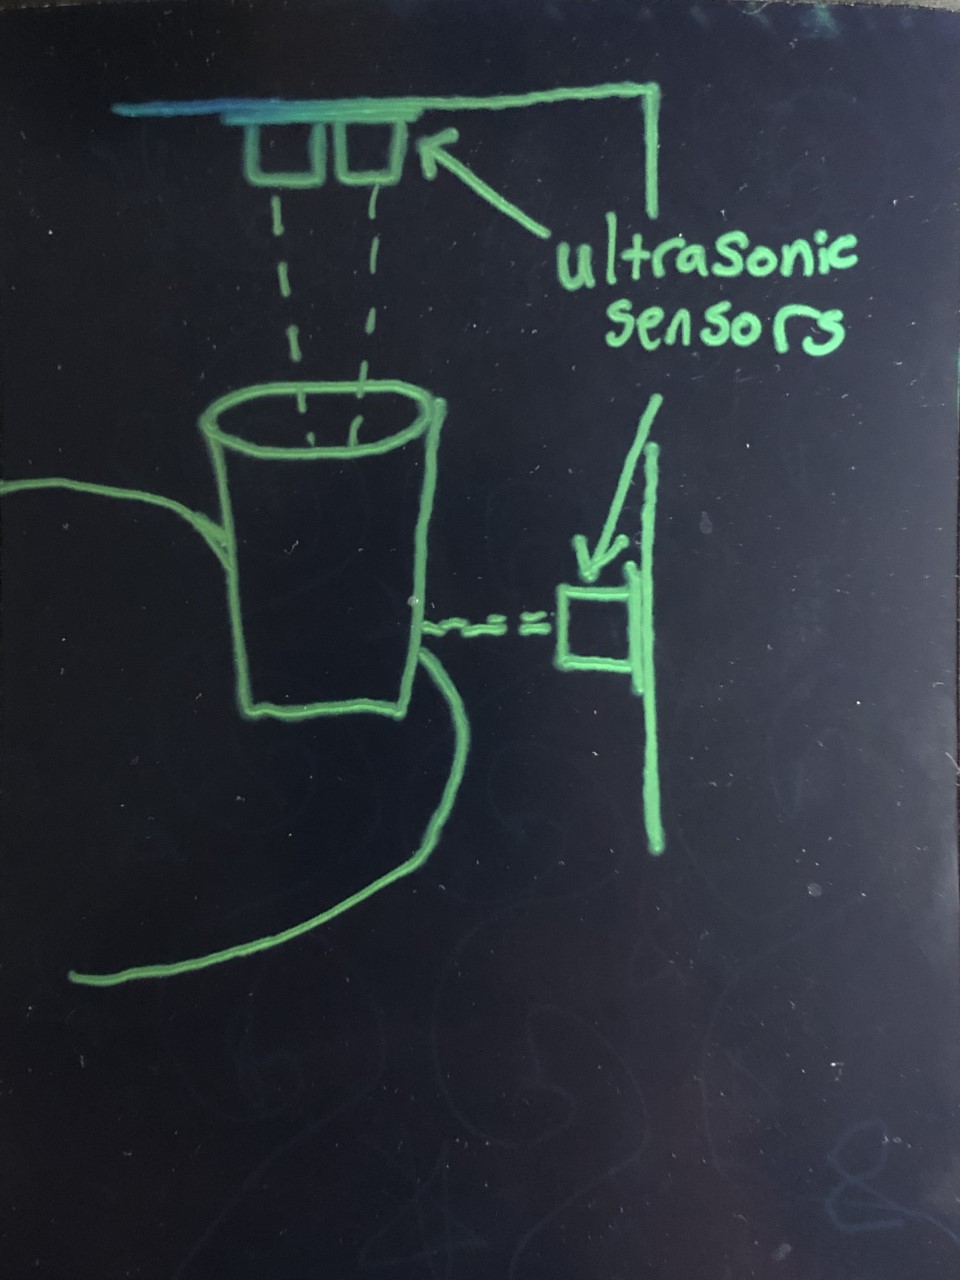 ultrasonic
sensors